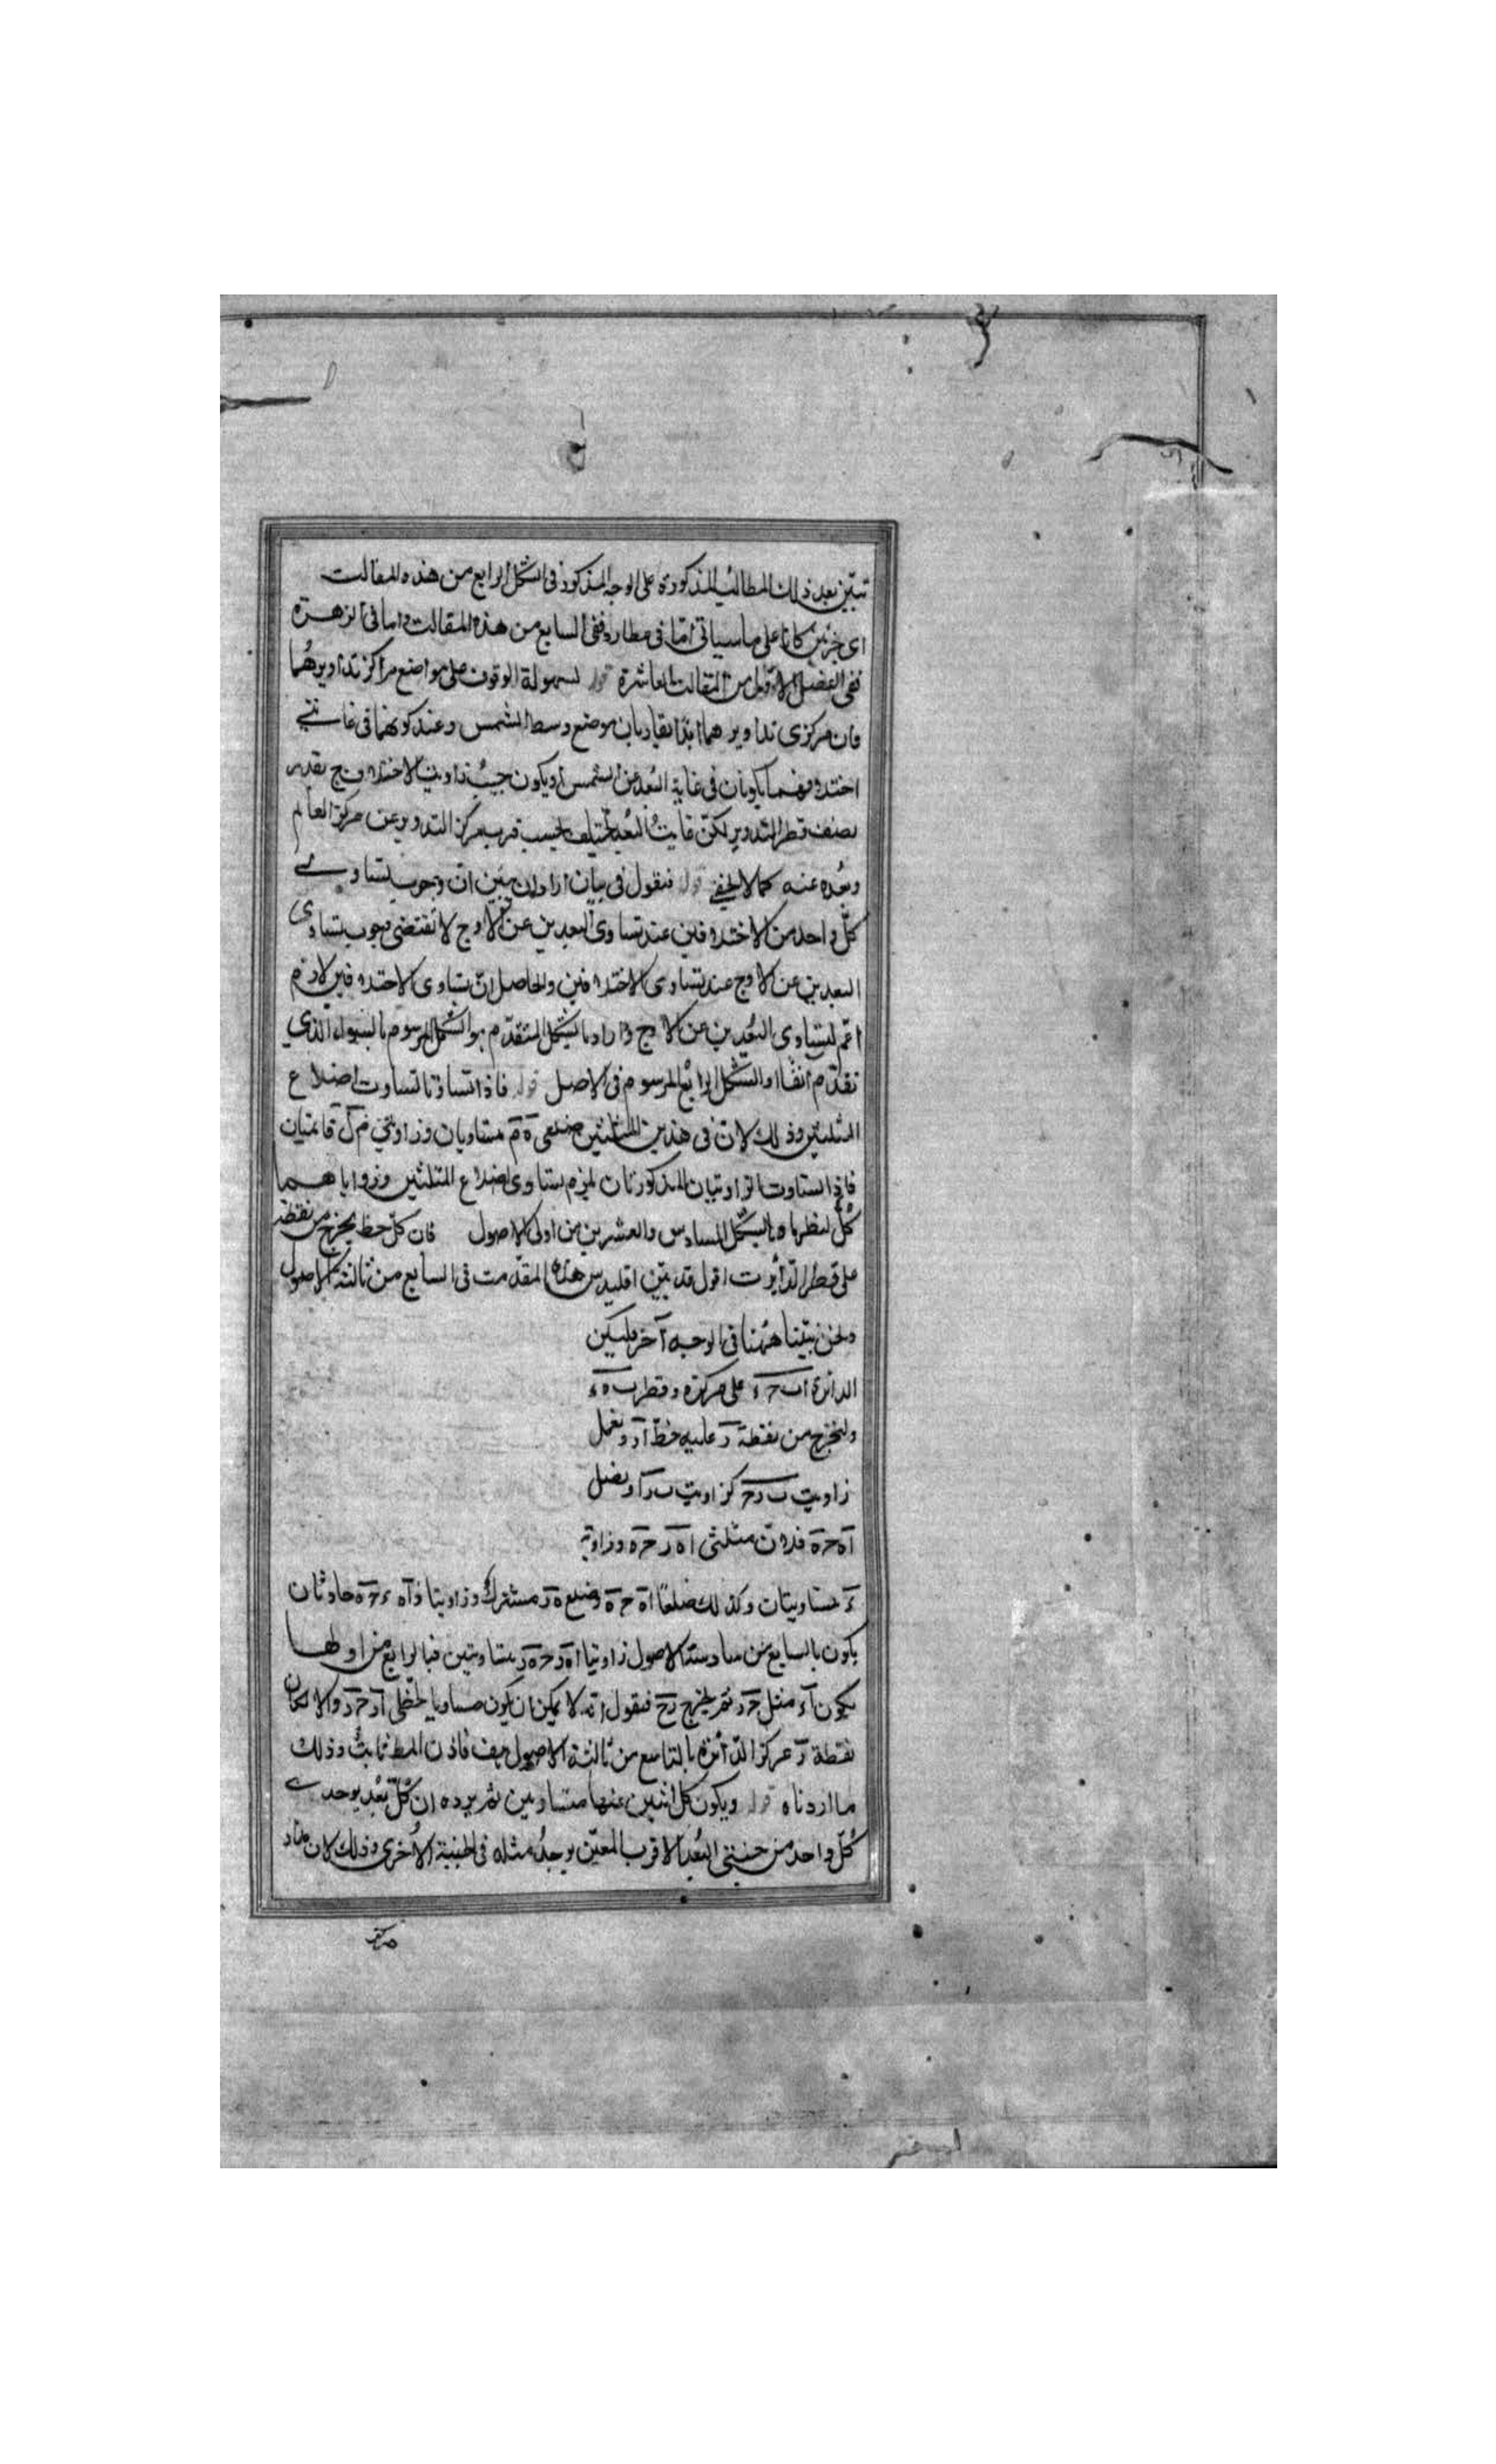 تبيّن بعد ذلك المطالب المذكورة على الوجه المذكور فى الشكل الرابع من هذه المقالت
اى جزئين كانا على ما سياتى امّا فى عطارد ففى السابع من هذه المقالت واما فى الزهرة
ففى الفصل الاوّل من المقالت العاشرة قوله لسهولة الوقوف على مواضع مراكز تداويرهما
فان مركزى تداويرهما ابدًا يقاربان موضع وسط الشمس وعند كونهما فى غايتى
اختلافهما يكونان فى غاية البُعد عن الشمس ويكون جيبُ زاويت الاختلاف ح بقدر
نصف قطر التدوير لكنّ غايتُ البُعد تختلف بحسب قرب مركز التدوير عن مركز العالم
وبُعده عنه كما لا يخفى قوله فنقول فى بيان اراد ان يبين ان وجوب تساوى
كلّ واحد من الاختلافين عند تساوى البعدين عن الاوج لا تقتضى وجوب تساوى
البعدين عن الاوج عند تساوى الاختلافين والحاصل انّ تساوى الاختلافين لازم
اعمّ لتساوى البُعدين عن الاوج واراد بالشكل المتقدّم هو الشكل المرسوم بالسواد الّذي
تقدّم آنفًا او الشكل الرابع المرسوم فى الاصل قوله فاذا تساوتا تساوت اضلاع
المثلثين وذلك لان فى هذين المثلثين ضلعى ه م متساويان وزاويتى م ل قائمتيان
فاذا تساوت الزاويتيان المذكورتان لزم تساوى اضلاع المثلثين وزواياهما
كلٌ لنظرياه بالشكل السادس والعشرين من اولى الاصول فان كلّ خط يخرج من نقطة
على قطر الدّايرت اقول قد بيّن اقليدس هذه المقدّمت فى السابع من ثالثة الاصول
ونحن بيّنا هٰهنا فى الوجه آخر فليكن
الدائرة اب ح ء على مركز ه وقطر ب ه ء
ولنخرج من نقطة ز عليه خطّ از ونعمل
زاويت ب ز ح كزاويت ب ز ا ونصل
اه ح ه فلان مثلثى ا ه ز ح ز ه وزاوية
ز متساويتان وكذلك ضلعا اه ح ه وضلع ه ز مشترك وزاويتا زاه ز ح ه حادتان
يكون بالسابع من سادسة الاصول زاويتا اه ز ح ه ز متساويتين فبالرابع من اولها
يكون از مثل ح ز ثم يخرج زح فنقول انه لا يمكن ان يكون مساويا لخطّى از ح ز والا لكان
نقطة ز مركز الدّائرة بالتاسع من ثالثة الاصول هف فاذن المط ثابتٌ وذلك
ما اردناه قوله ويكون كلّ اثنين عنها متساويين ثم يرده ان كلّ بُعد يوجد
كُلّ واحد من جنبتى البُعد الاقرب المعيّن يوجدُ مثله فى الجنبة الاُخرى وذلك لان